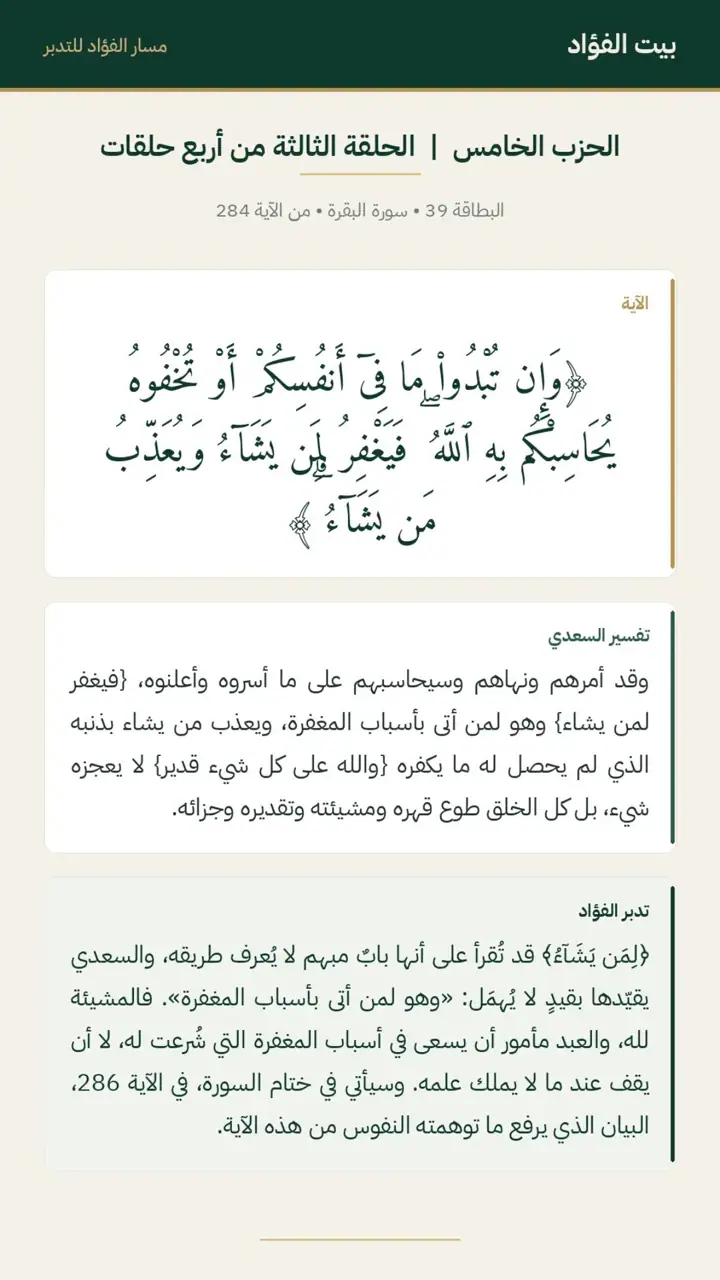 بيت الفؤاد
مسار الفؤاد للتدبر
الحزب الخامس | الحلقة الثالثة من أربع حلقات
البطاقة 39 • سورة البقرة • من الآية 284
الآية
﴿وَإِن تُبْدُوا۟ مَا فِىٓ أَنفُسِكُمْ أَوْ تُخْفُوهُ
يُحَاسِبْكُم بِهِ ٱللَّهُ ۖ فَيَغْفِرُ لِمَن يَشَآءُ وَيُعَذِّبُ
مَن يَشَآءُ ۗ﴾
تفسير السعدي
وقد أمرهم ونهاهم وسيحاسبهم على ما أسروه وأعلنوه، {فيغفر
لمن يشاء} وهو لمن أتى بأسباب المغفرة، ويعذب من يشاء بذنبه
الذي لم يحصل له ما يكفره {والله على كل شيء قدير} لا يعجزه
شيء، بل كل الخلق طوع قهره ومشيئته وتقديره وجزائه.
تدبر الفؤاد
﴿لِمَن يَشَآءُ﴾ قد تُقرأ على أنها بابٌ مبهم لا يُعرف طريقه، والسعدي
يقيّدها بقيدٍ لا يُهمَل: «وهو لمن أتى بأسباب المغفرة». فالمشيئة
لله، والعبد مأمور أن يسعى في أسباب المغفرة التي شُرعت له، لا أن
يقف عند ما لا يملك علمه. وسيأتي في ختام السورة، في الآية 286،
البيان الذي يرفع ما توهمته النفوس من هذه الآية.